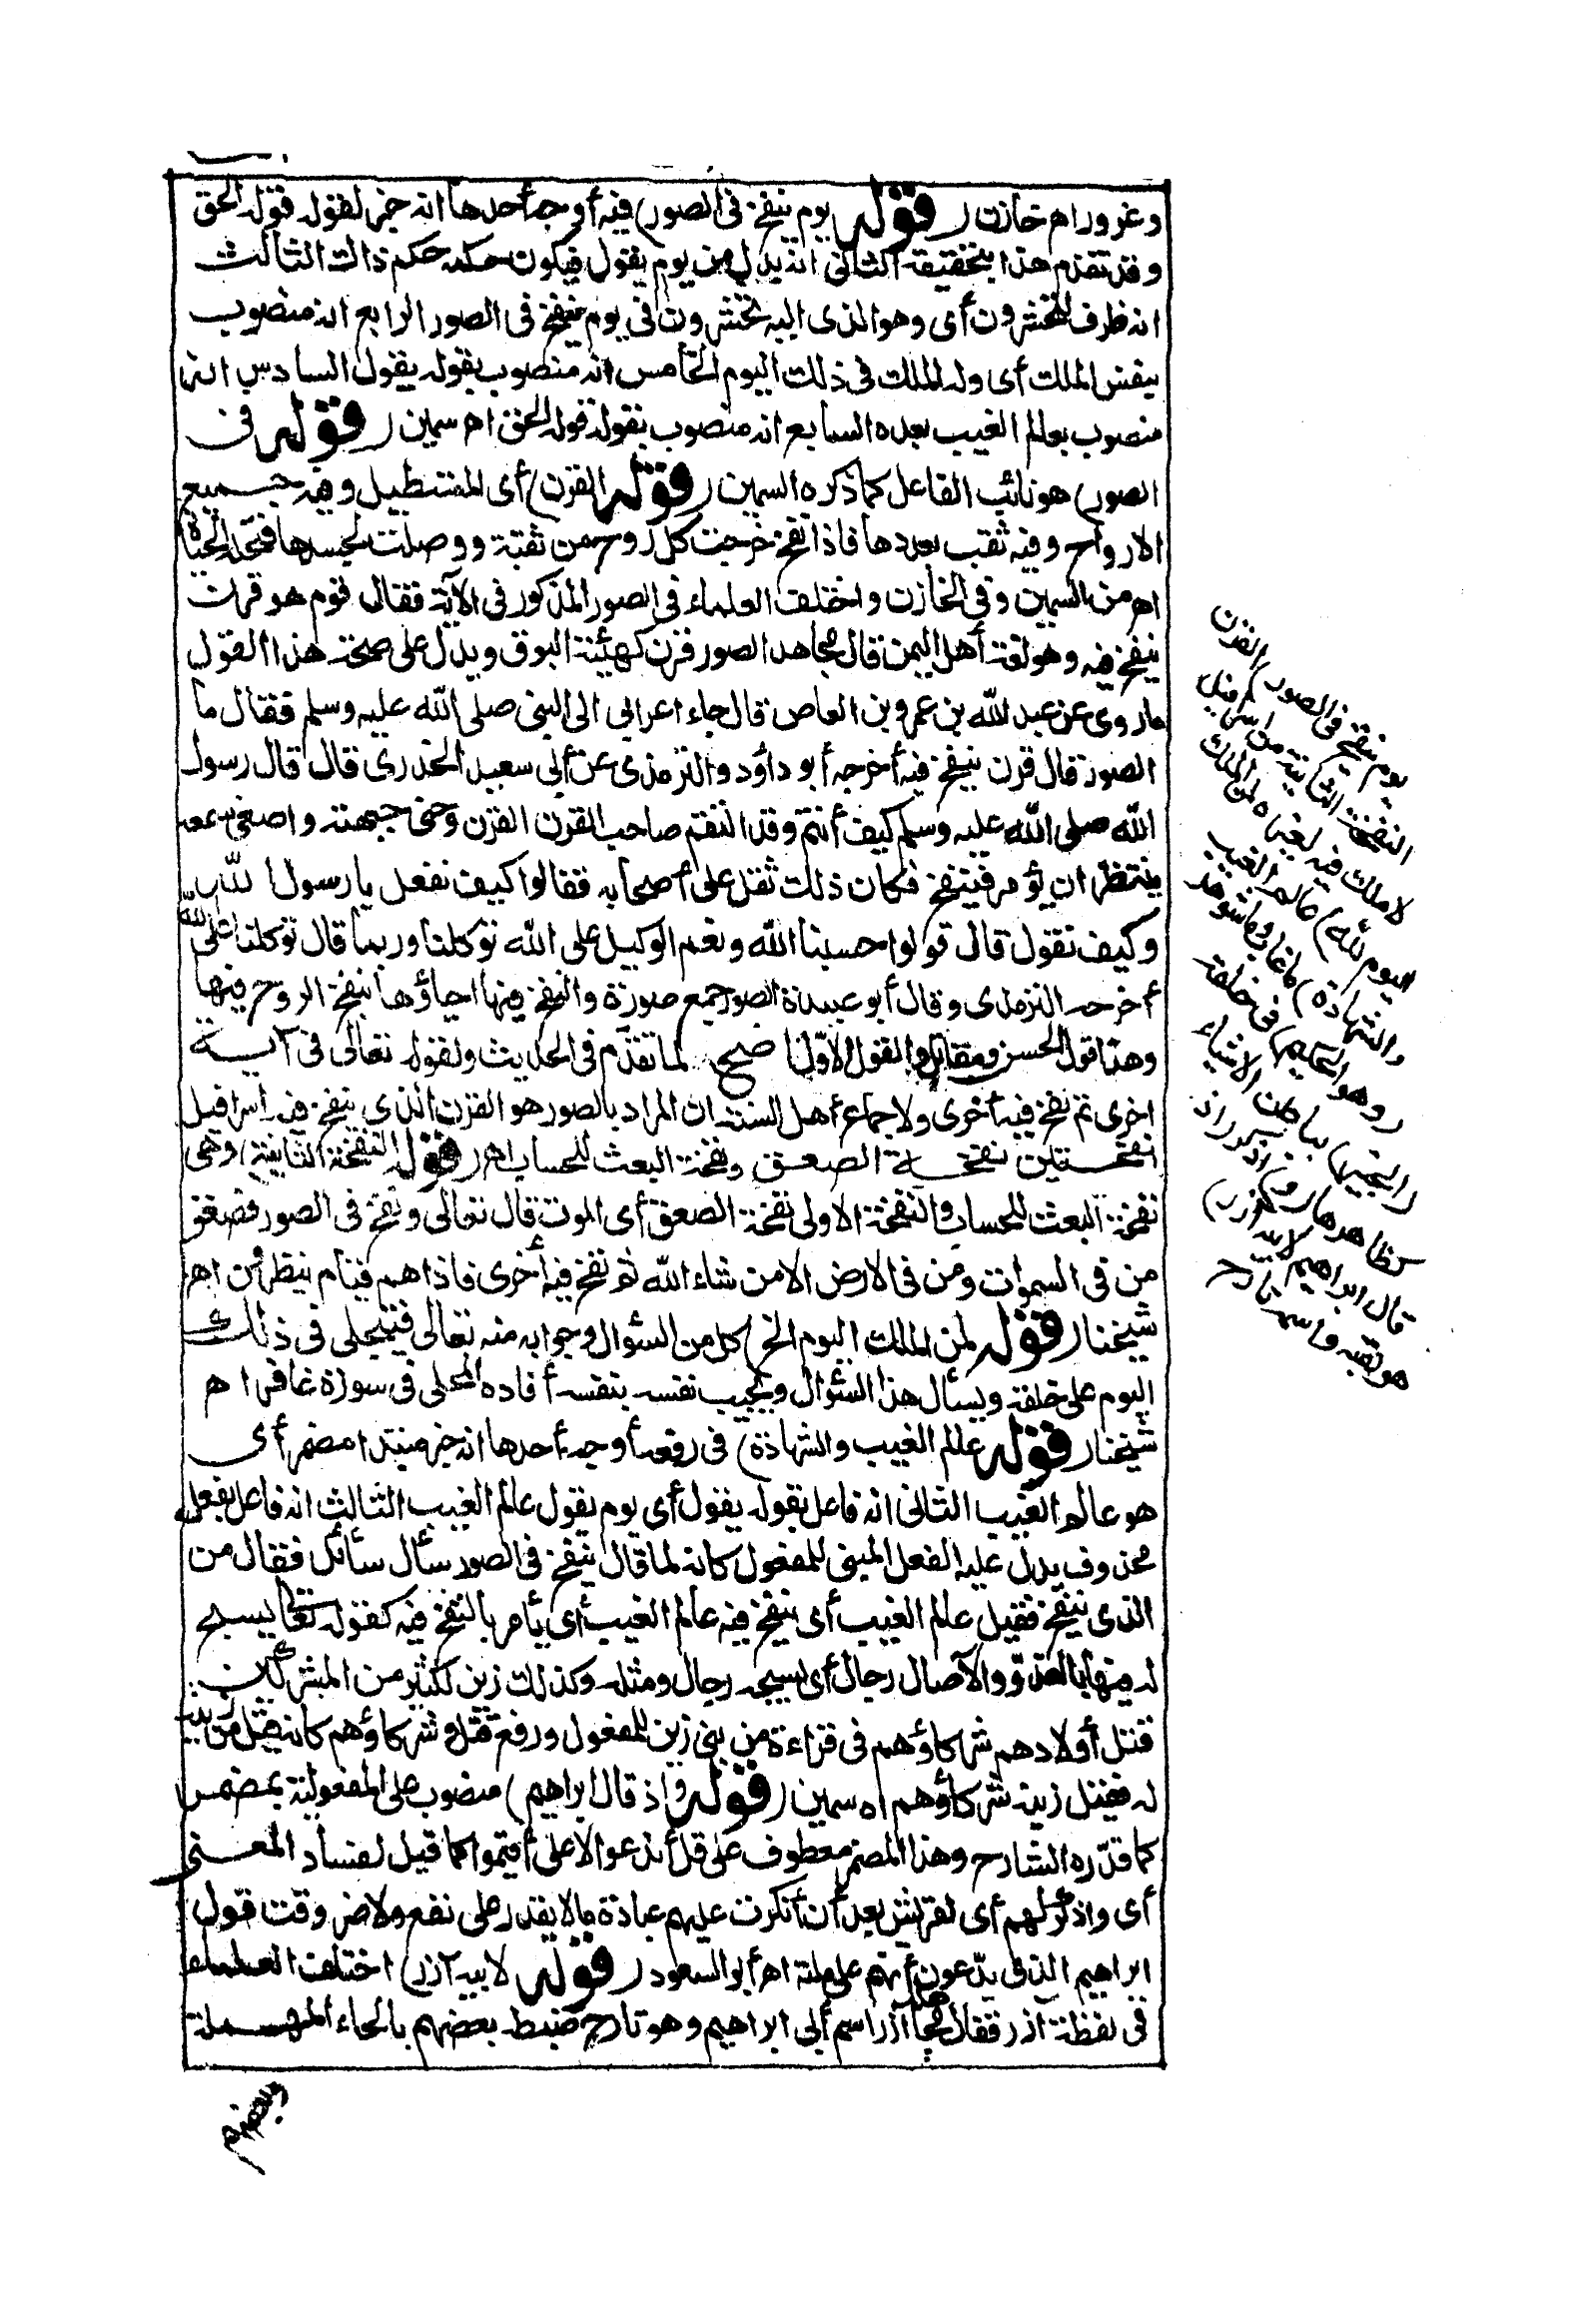 وغرور اه خازن (قوله يوم ينفخ فى الصور) فيه أوجه أحدها انه خبر لقوله قوله الحق
وقد تقدم هذا بتحقيقه الثانى انه بدل من يوم يقول فيكون حكمه حكم ذالك الثالث
انه ظرف لتحشرون أى وهو الذى اليه تحشرون فى يوم ينفخ فى الصور الرابع انه منصوب
بنفس الملك أى وله الملك فى ذلك اليوم الخامس انه منصوب بقوله يقول السادس انه
منصوب بعالم الغيب بعده السابع انه منصوب بقوله قوله الحق اه سمين (قوله فى
الصور) هو نائب الفاعل كما ذكره السمين (قوله القرن) أى المستطيل وفيه جميع
الارواح وفيه ثقب بعددها فاذا نفخ خرجت كل روح من ثقبة ووصلت لجسدها فتحله الحياة
اه من السمين وفى الخازن واختلف العلماء فى الصور المذكور فى الآية فقال قوم هو قرن
ينفخ فيه وهو لغة أهل اليمن قال مجاهد الصور قرن كهيئة البوق ويدل على صحة هذا القول
ما روى عن عبد الله بن عمرو بن العاص قال جاء اعرابى الى النبى صلى الله عليه وسلم فقال ما
الصور قال قرن ينفخ فيه أخرجه أبو داؤد والترمذى عن أبى سعيد الخدرى قال قال رسول
الله صلى الله عليه وسلم كيف أنتم وقد التقم صاحب القرن القرن وحنى جبهته واصغى سمعه
ينتظر ان يؤمر فينفخ فكان ذلك ثقل على أصحابه فقالوا كيف نفعل يا رسول الله
وكيف نقول قال قولوا حسبنا الله ونعم الوكيل على الله توكلنا وربما قال توكلنا على الله
أخرجه الترمذى وقال أبو عبيدة الصور جمع صورة والنفخ فيها احياؤها بنفخ الروح فيها
وهذا قول الحسن ومقاتل والقول الأول اصح لما تقدم فى الحديث ولقوله تعالى فى آية
اخرى ثم نفخ فيه أخرى ولاجماع أهل السنة ان المراد بالصور هو القرن الذى ينفخ فيه اسرافيل
نفختين نفخة الصعق ونفخة البعث للحساب اه (قوله النفخة الثانية) وهى
نفخة البعث للحساب والنفخة الاولى نفخة الصعق أى الموت قال تعالى ونفخ فى الصور فصعق
من فى السموات ومن فى الارض الا من شاء الله ثم نفخ فيه أخرى فاذا هم قيام ينظرون اه
شيخنا (قوله لمن الملك اليوم الخ) كل من السؤال وجوابه منه تعالى فيتجلى فى ذلك
اليوم على خلقه ويسأل هذا السؤال ويجيب نفسه بنفسه أفاده المحلى فى سورة غافر اه
شيخنا (قوله عالم الغيب والشهادة) فى رفعه أوجه أحدها انه خبر مبتدا مضمر أى
هو عالم الغيب الثانى انه فاعل بقوله يقول أى يوم يقول عالم الغيب الثالث انه فاعل بفعل
محذوف يدل عليه الفعل المبنى للمفعول كانه لما قال ينفخ فى الصور سأل سائل فقال من
الذى ينفخ فقيل عالم الغيب أى ينفخ فيه عالم الغيب أى يأمر بالنفخ فيه كقوله تعالى يسبح
له فيها بالغدو والآصال رجال أى يسبحه رجال ومثله وكذلك زين لكثير من المشركين
قتل أولادهم شركاؤهم فى قراءة من بنى زين للمفعول ورفع قتل وشركاؤهم كانه قيل من زينه
له فقيل زينه شركاؤهم اه سمين (قوله واذ قال ابراهيم) منصوب على المفعولية بمضمر
كما قدره الشارح وهذا المضمر معطوف على قل أندعوا لا على أقيموا كما قيل لفساد المعنى
أى واذكر لهم أى لقريش بعد أن أنكرت عليهم عبادة ما لا يقدر على نفع ولا ضر وقت قول
ابراهيم الذى يدعون أنهم على ملته اه أبو السعود (قوله لابيه آزر) اختلف العلماء
فى لفظة آزر فقال آزر اسم أبى ابراهيم وهو تارح ضبطه بعضهم بالحاء المهملة
وبعضهم
يوم ينفخ فى الصور) القرن
النفخة الثانية من اسرافيل
لا ملك فيه لغيره لمن الملك
اليوم لله) عالم الغيب
والشهادة) ما غاب وما شوهد
(وهو الحكيم) فى خلقه
(الخبير) بباطن الاشياء
كظاهرها (و) اذكر (اذ
قال ابراهيم لابيه آزر)
هو لقبه واسمه تارح